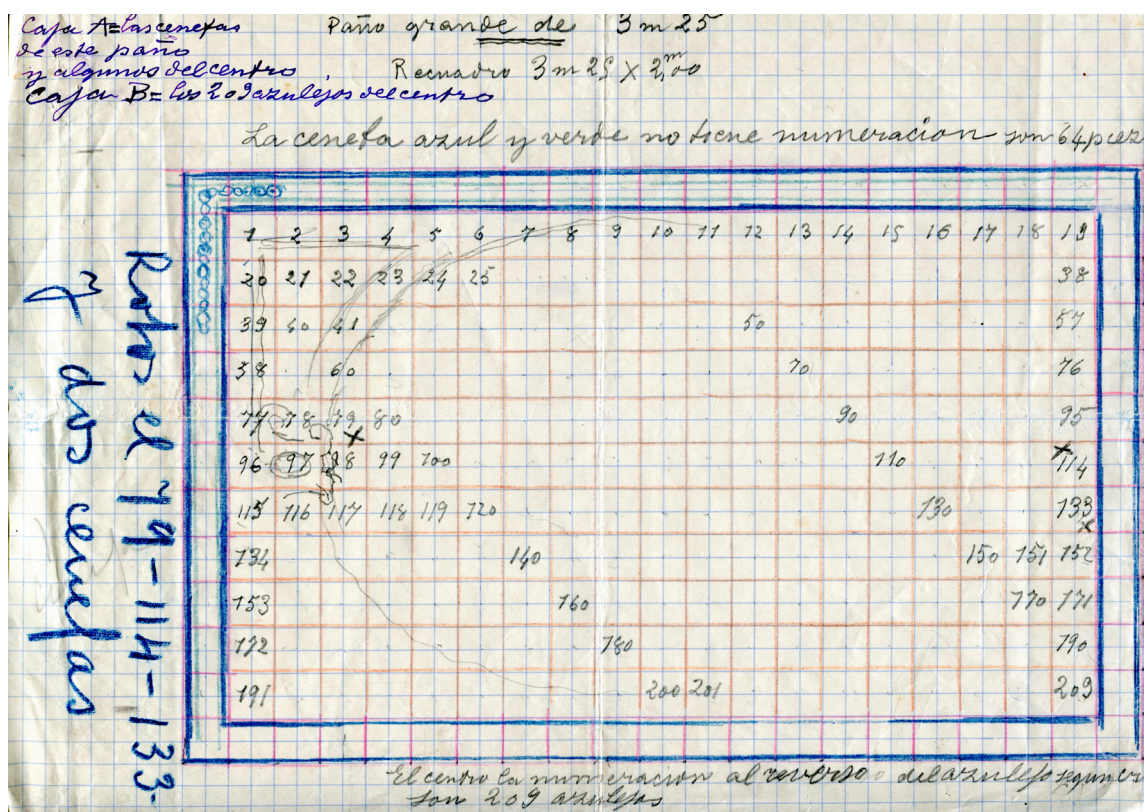 Caja A= Las cenefas
de este paño
y algunos del centro.
Caja B= los 209 azulejos del centro
Paño grande de 3 m 25
Recuadro 3 m 25 X 2,m00
La cenefa azul y verde no tiene numeracion son 64 piez
1 2 3 4 5 6 7 8 9 10 11 12 13 14 15 16 17 18 19
20 21 22 23 24 25 38
39 40 41 50 57
58 60 70 76
77 78 79 80 90 95
96 97 98 99 100 110 114
115 116 117 118 119 120 130 133
134 140 150 151 152
153 160 170 171
172 180 190
191 200 201 209
Rotos el 79-114-133-
y dos cenefas
El centro la numeracion al reverso del azulejo
son 209 azulejos